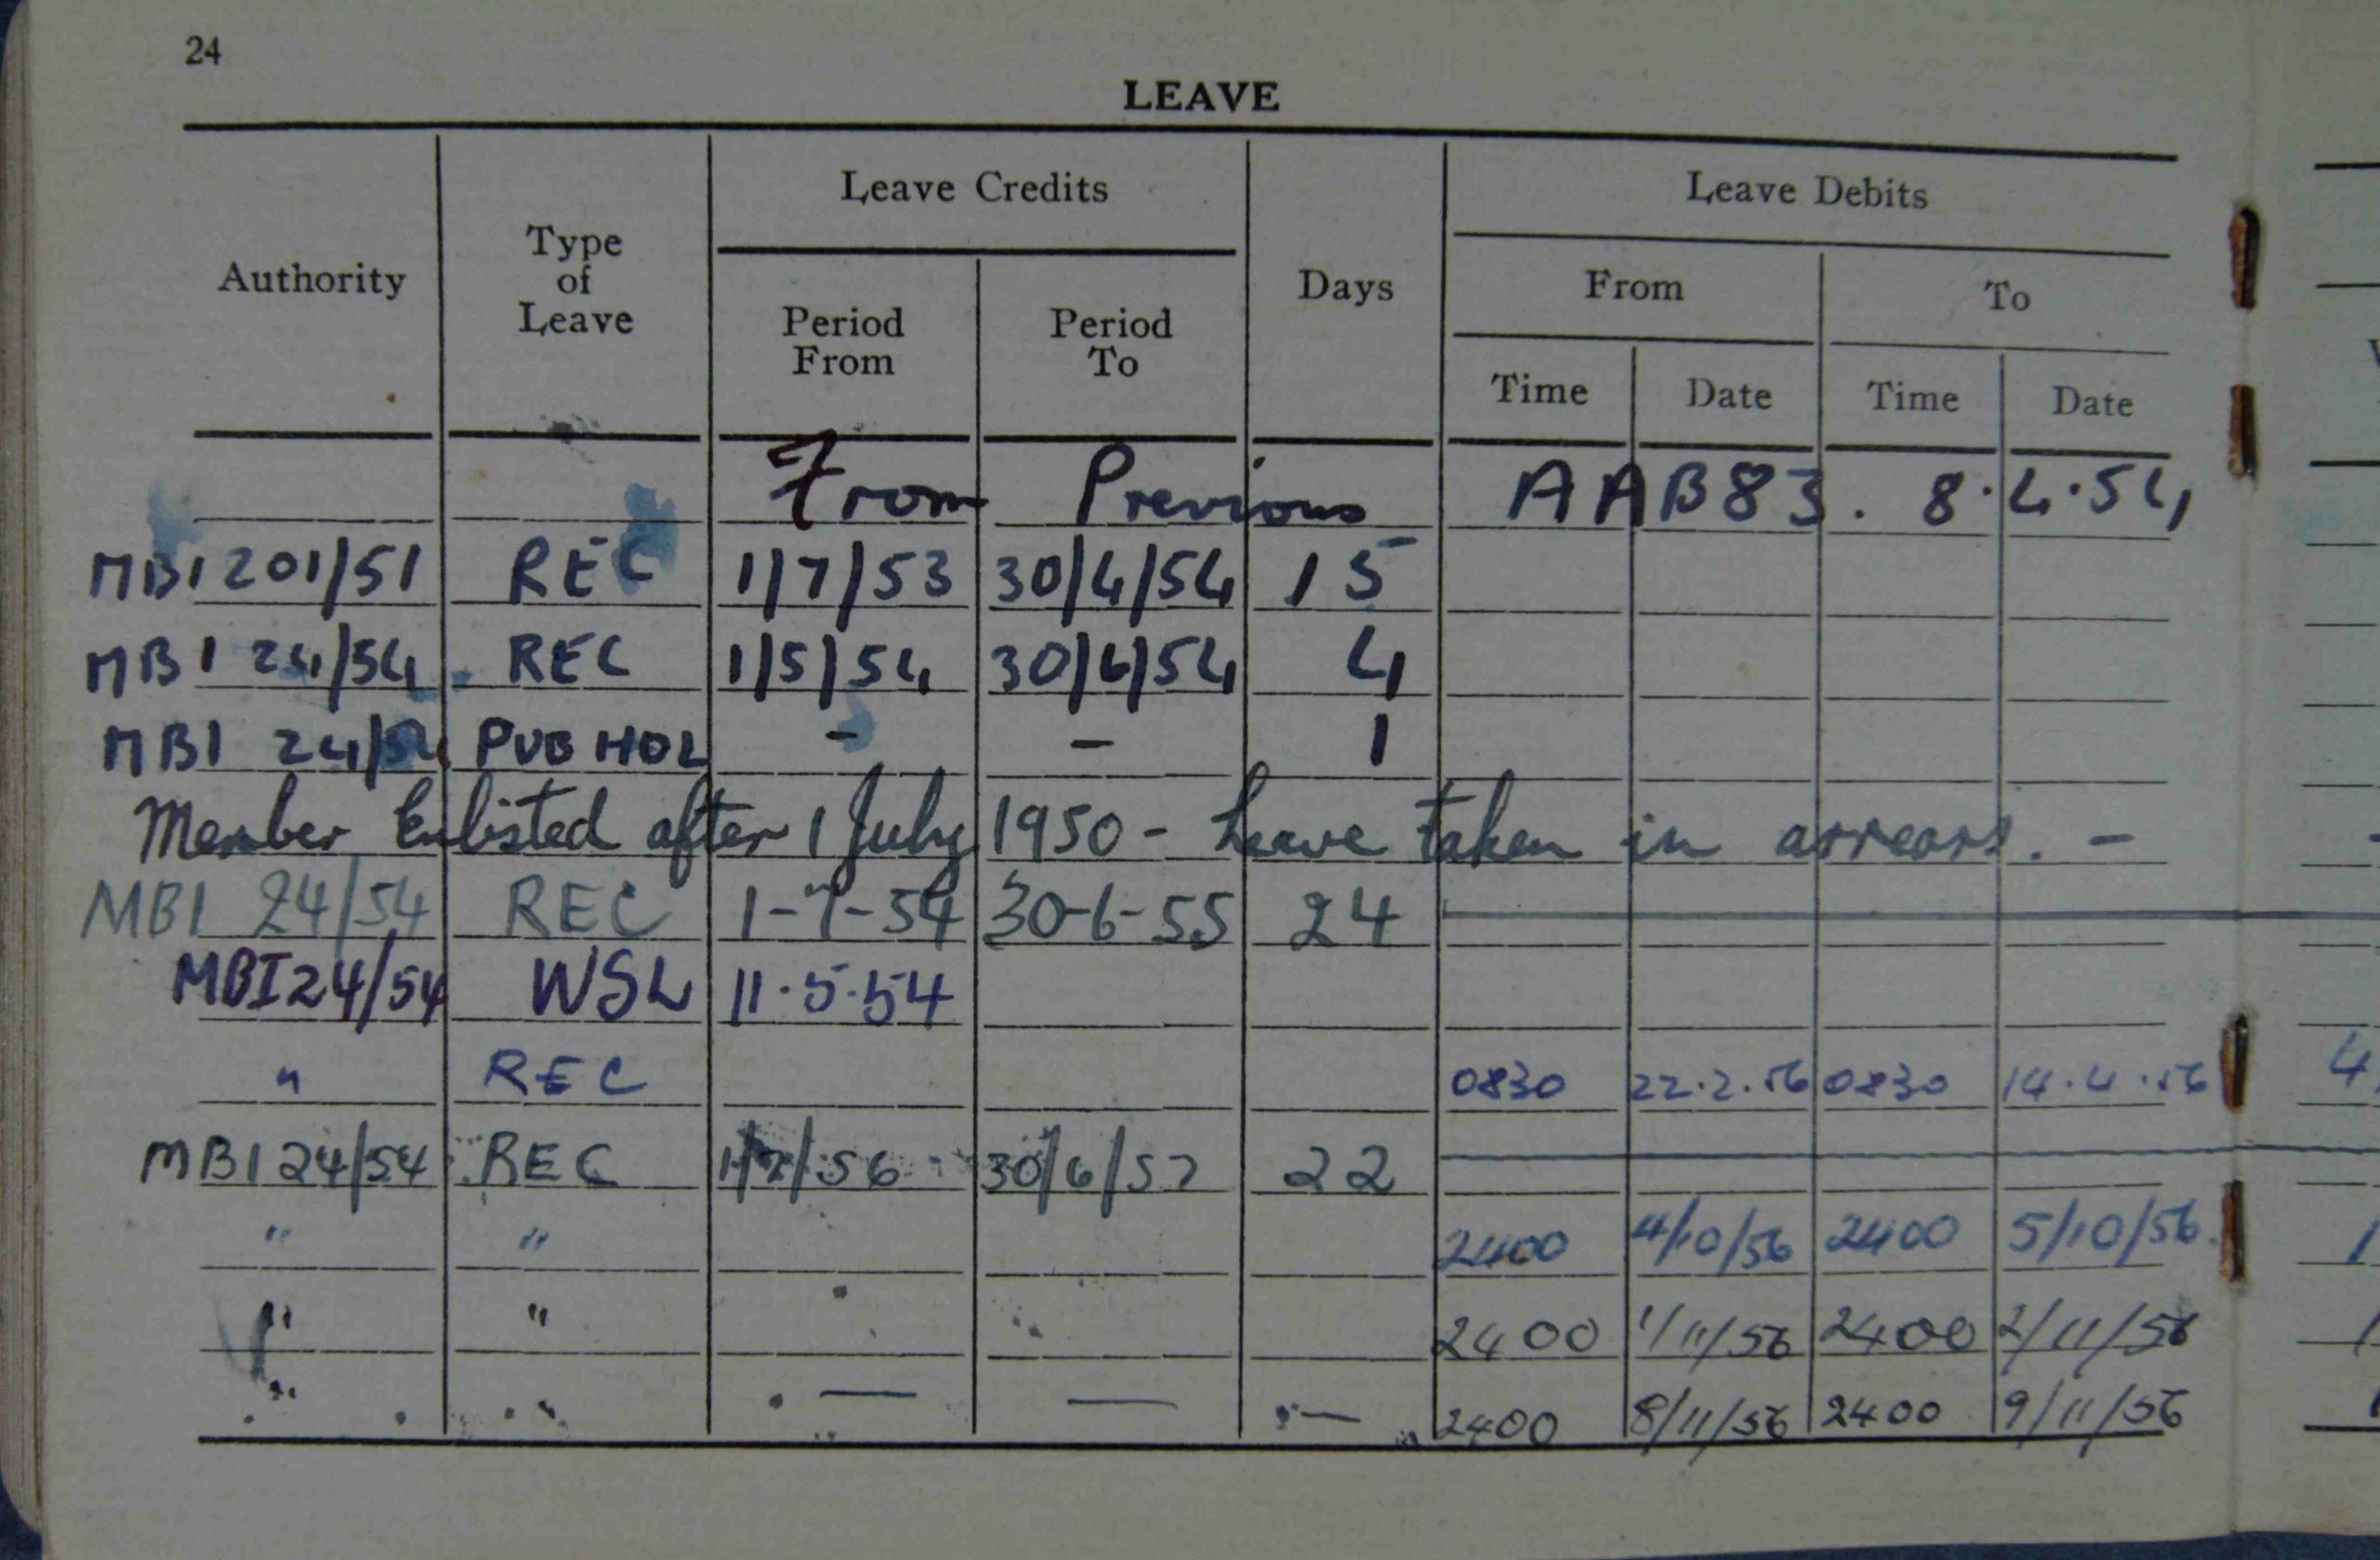 24
LEAVE
Authority Type of Leave Leave Credits Days Leave Debits
Period From Period To From To
Time Date Time Date
From Previous AAB83. 8.4.54
MBI 201/51 REC 1/7/53 30/4/54 15
MBI 24/54 REC 1/5/54 30/6/54 4
MBI 24/54 PUB HOL - - 1
Member Enlisted after 1 July 1950 - Leave taken in arrears. -
MBI 24/54 REC 1-7-54 30-6-55 24
MBI 24/54 WSL 11.5.54
" REC 0830 22.2.56 0830 14.4.56 4
MBI 24/54 REC 1/7/56 30/6/57 22
" " 2400 4/10/56 2400 5/10/56. 1
" " 2400 1/11/56 2400 2/11/56 1
" " — — — 2400 8/11/56 2400 9/11/56